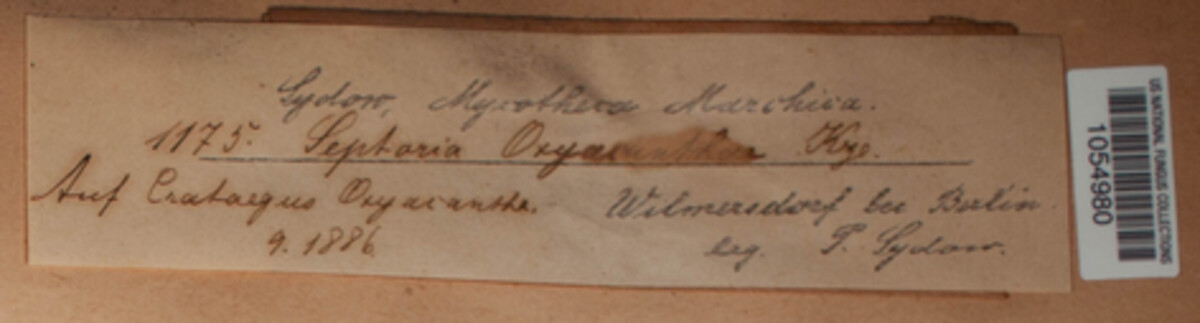 Sydow, Mycotheca Marchica.
1175. Septoria Oxyacanthae Kze.
Auf Crataegus Oxyacantha.
9. 1886
Wilmersdorf bei Berlin.
leg. P. Sydow.
US NATIONAL FUNGUS COLLECTIONS
1054980